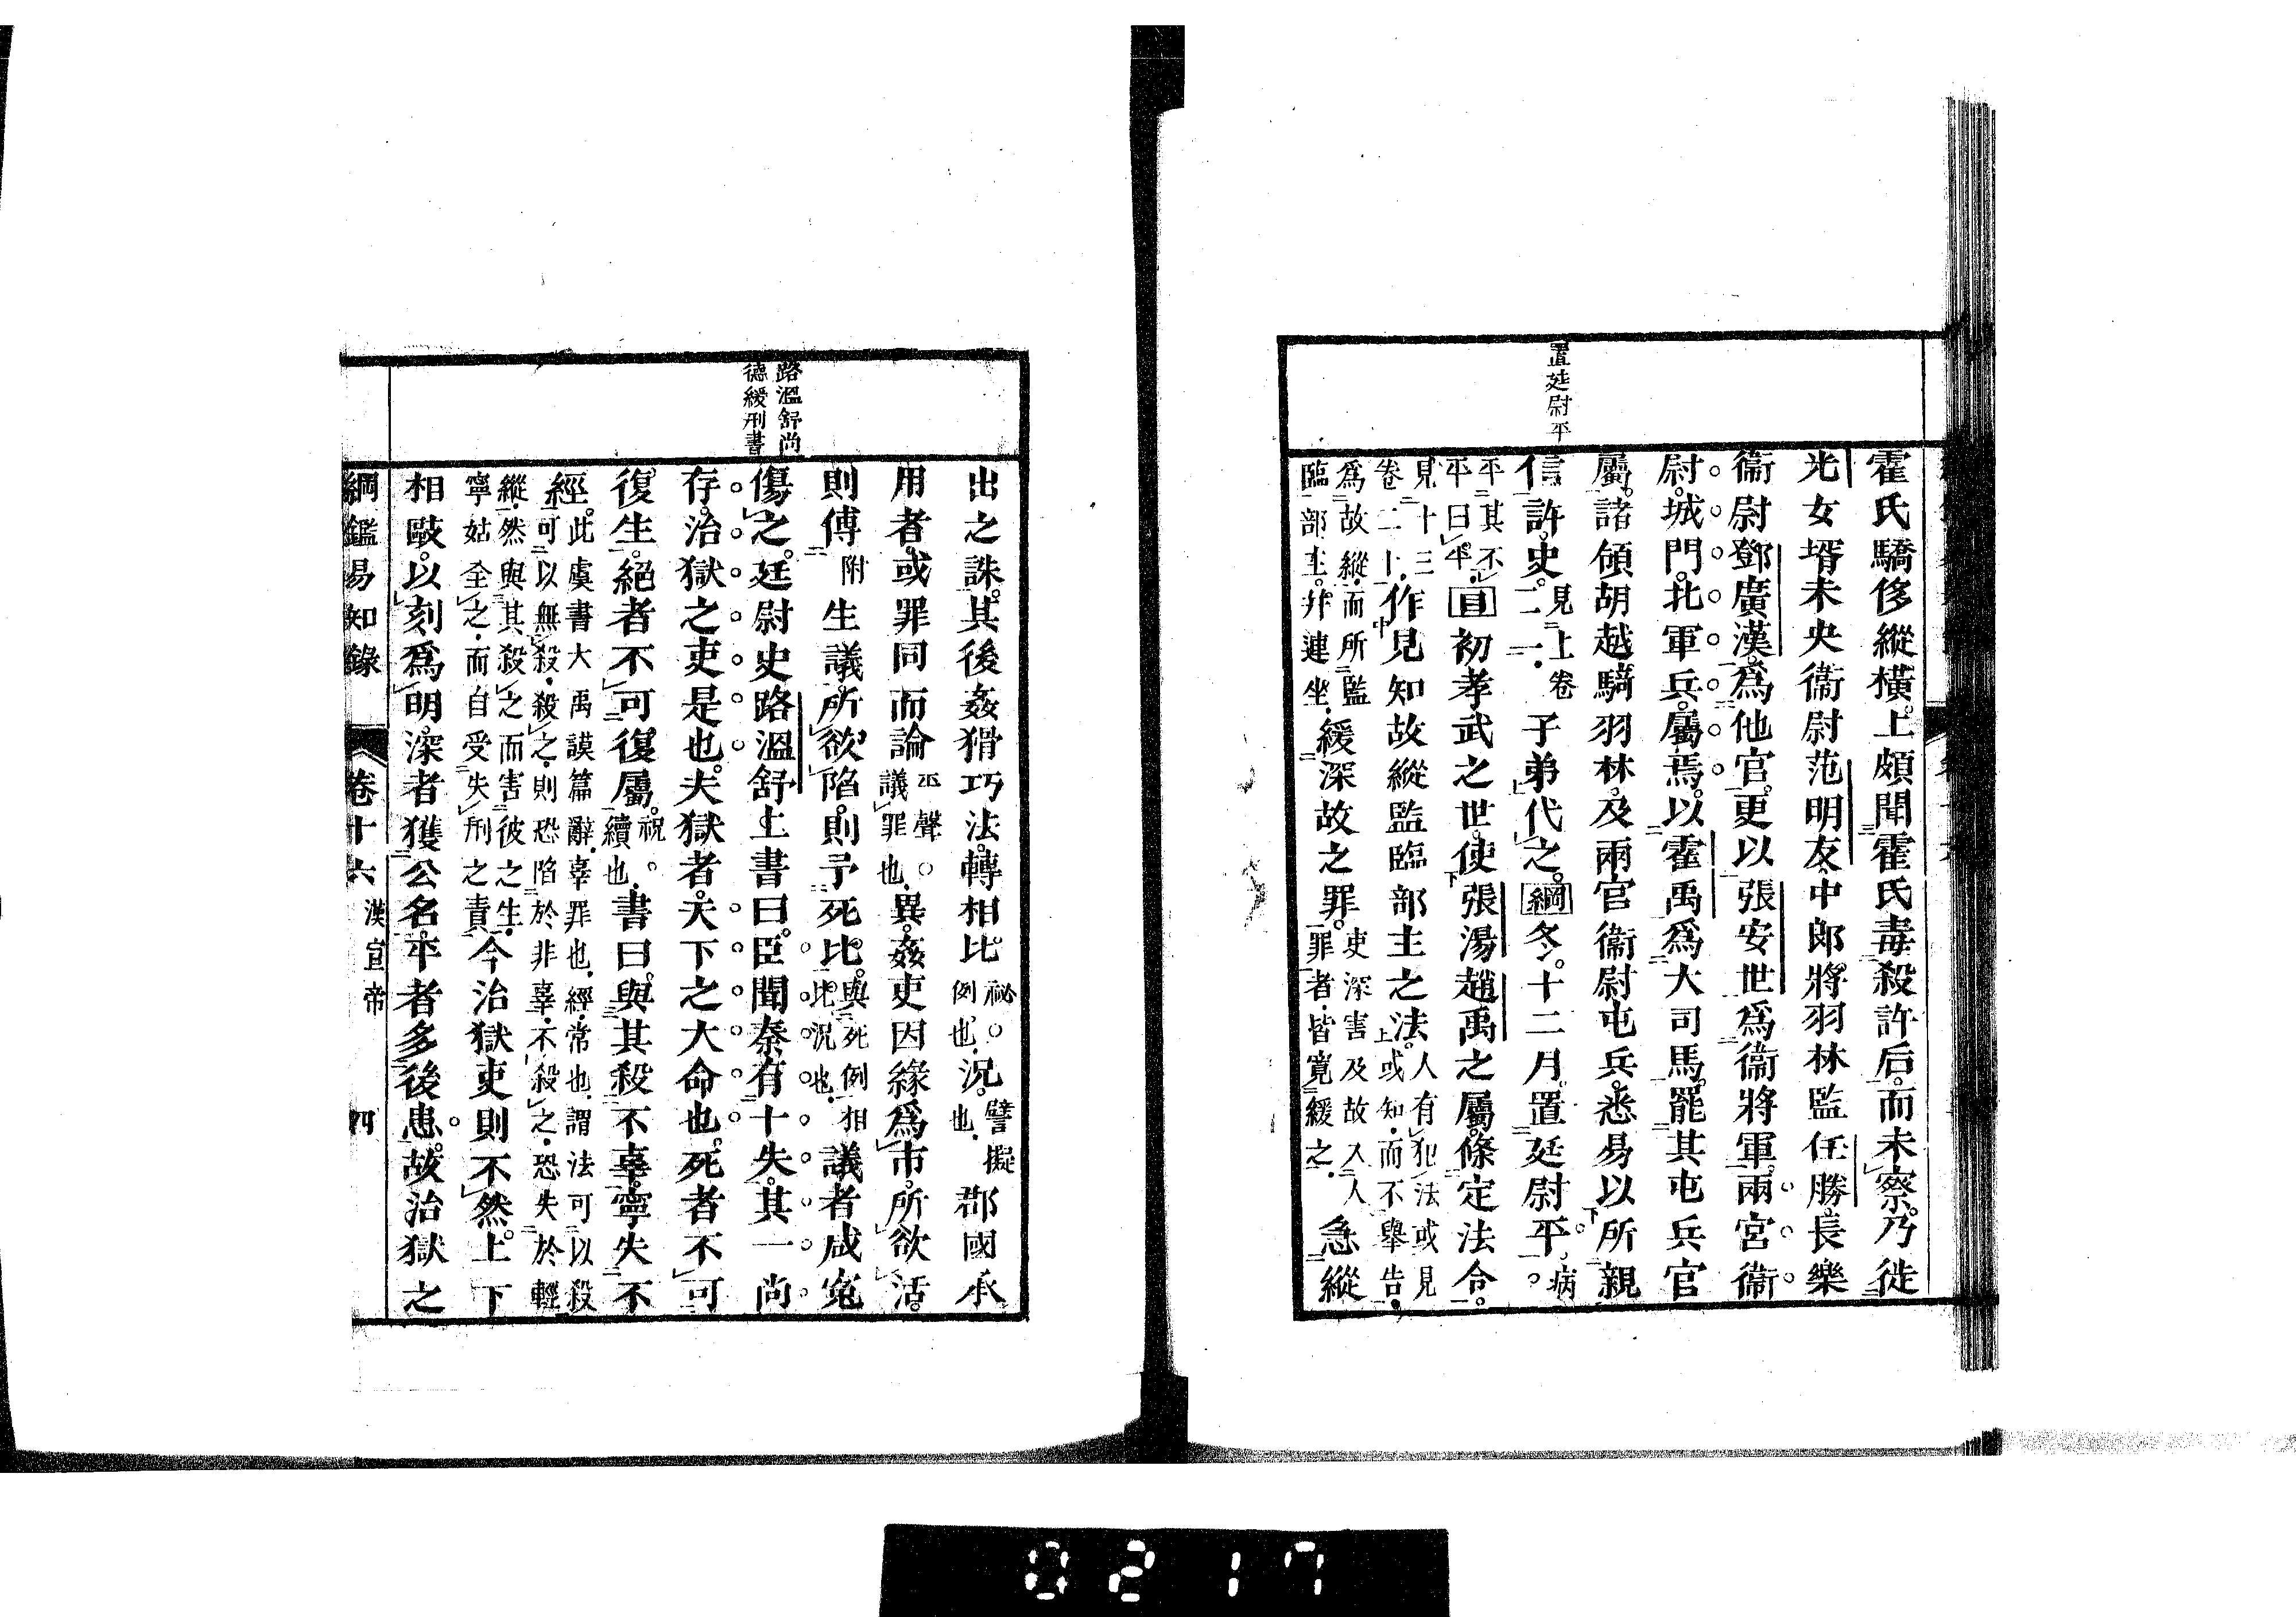 置廷尉平
霍氏驕侈縱橫。上頗聞霍氏毒殺許后。而未察。乃徙
光女壻未央衞尉范明友。中郎將羽林監任勝。長樂
衞尉鄧廣漢。爲他官。更以張安世爲衞將軍。兩宮衞
尉。城門。北軍兵。屬焉。以霍禹爲大司馬。罷其屯兵官
屬。諸領胡越騎羽林。及兩宮衞尉屯兵。悉易以所親
信許。史。見上卷子弟代之。綱冬。十二月。置廷尉平。病
平其不
平曰平。目初孝武之世。使張湯趙禹之屬。條定法令。
見十三
卷二十。作見知故縱監臨部主之法。人有犯法或見
或知。而不舉告。
爲故縱。而所監
臨部主。幷連坐。緩深故之罪。吏深害及故入人
罪者。皆寬緩之。急縱
路溫舒尚
德緩刑書
出之誅。其後姦猾巧法。轉相比。祕○
例也。況。譬擬
也。郡國承
用者。或罪同而論平聲○
議罪也。異。姦吏因緣爲市。所欲活。
則傅附生議。所欲陷。則予死比。與死例相
比況也。議者咸寃
傷之。廷尉史路溫舒上書曰。臣聞秦有十失。其一尚
存。治獄之吏是也。夫獄者。天下之大命也。死者不可
復生。絕者不可復屬。祝。
續也。書曰。與其殺不辜。寧失不
經。此虞書大禹謨篇辭。辜罪也。經。常也。謂法可以殺
可以無殺。殺之。則恐陷於非辜。不殺之。恐失於輕
縱。然與其殺之而害彼之生。
寧姑全之。而自受失刑之責。今治獄吏則不然。上下
相敺。以刻爲明。深者獲公名。平者多後患。故治獄之
綱鑑易知錄 卷十六 漢宣帝 四
0217